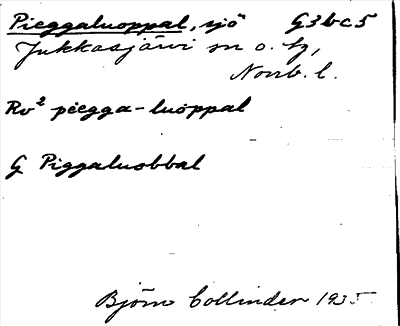 Pieggaluoppal, sjö G3bc5
Jukkasjärvi sn o. tg,
Norrb. l.
Rv² piegga-luoppal
G Piggaluobbal
Björn Collinder 1935